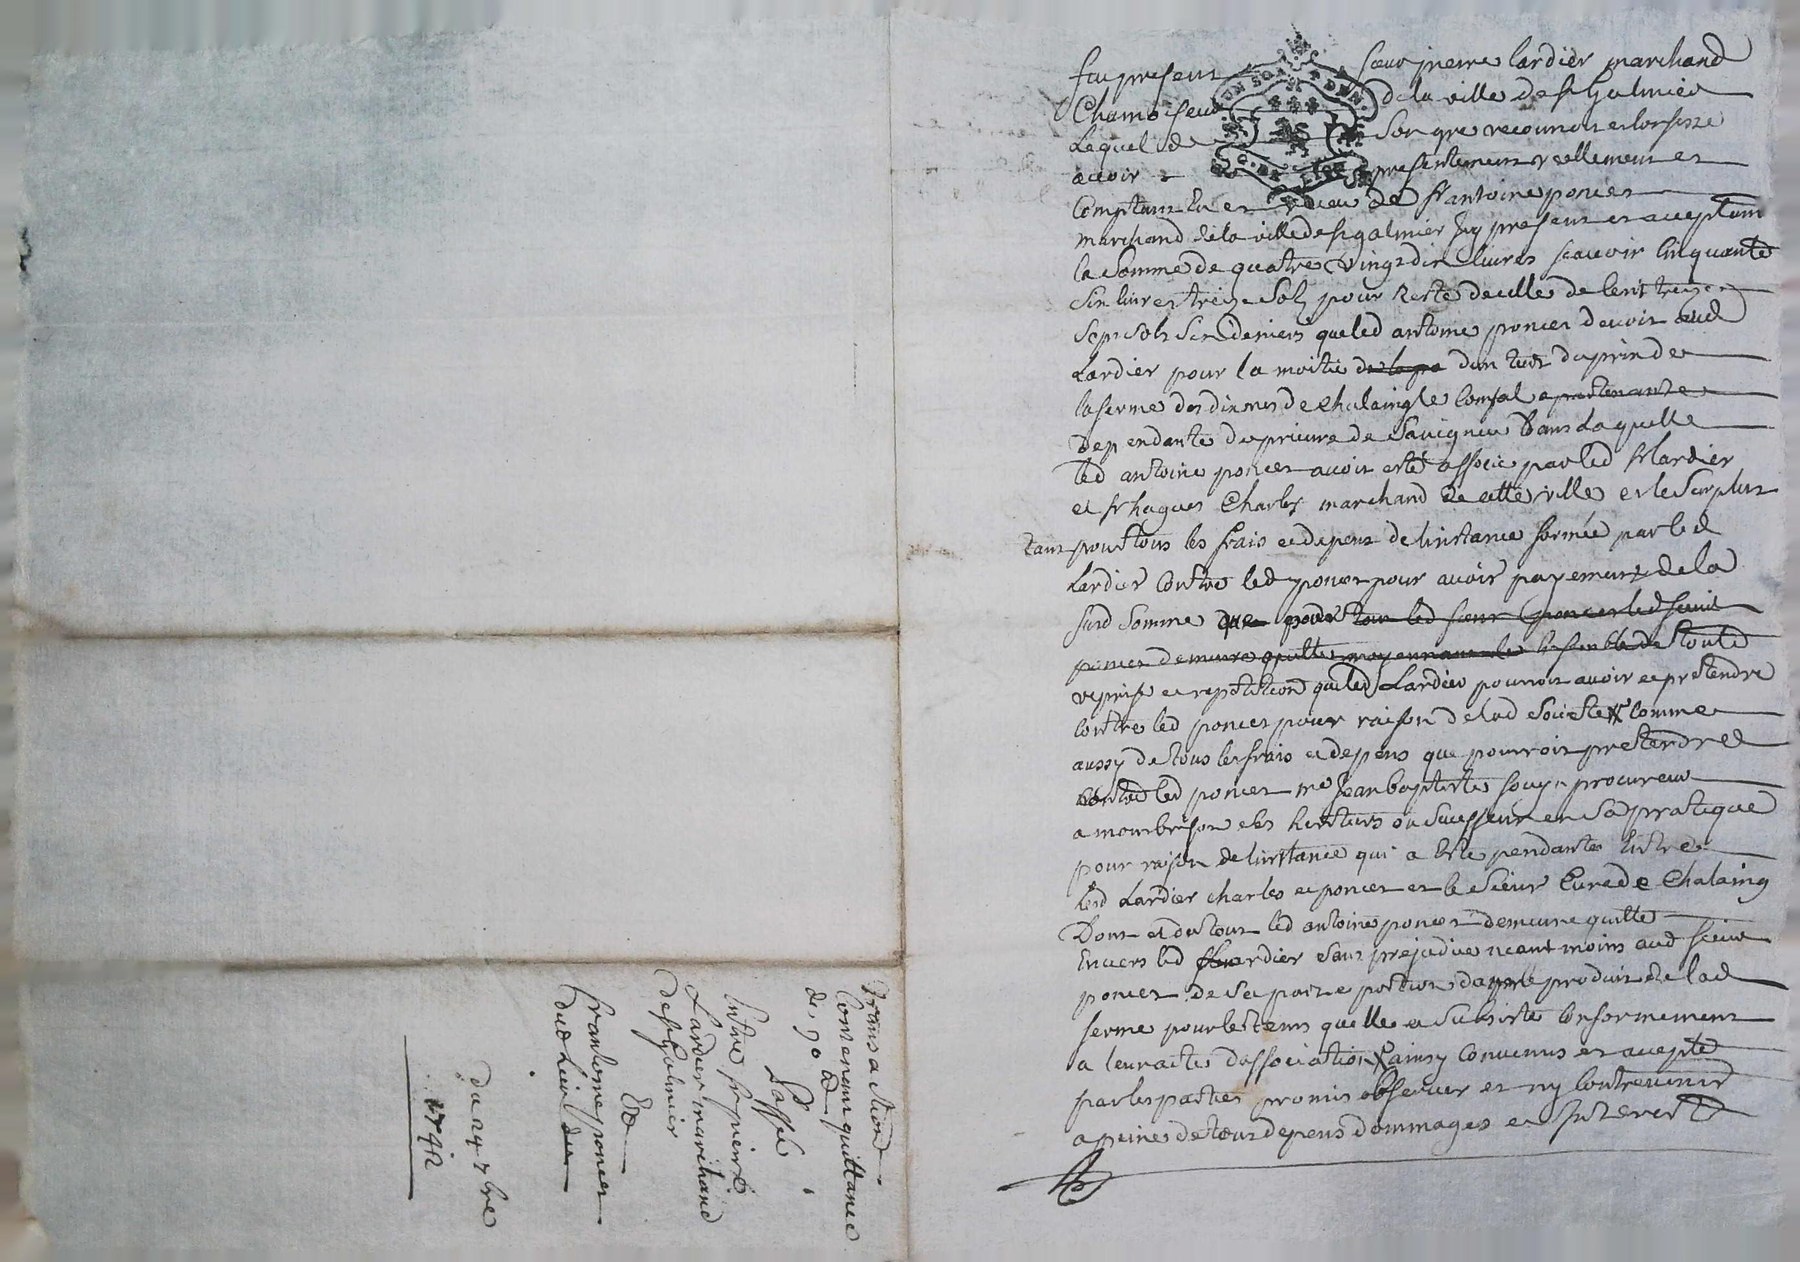 fut present sieur pierre lardier marchand
Chamoiseur de la ville de st Galmier
Lequel de son gre reconnoit et confesse
avoir presentement reellement et
Comptant eu et receu de sr antoine poncet
marchand de la ville de st galmier Icy present et aceptant
la Somme de quatre vingt dix livres scavoir Cinquante
six livres treize Solz pour Reste de celle de Cent treize
Sept sols six deniers que led antoine poncet devoit aud
Lardier pour la moitié de la pa dun tiers du prix de
la ferme des dixmes de Chalaing le Comtal apartenante
Dependante du prieuré de Savigneu Dans Laquelle
led antoine poncet avoit esté associé par led sr Lardier
et sr hugues Charles marchand de cette ville et le Surplus
tant pour tous les frais et depens de linstance formée par led
Lardier Contre led poncet pour avoir payement de la
susd Somme que pour tout led sieur poncet led sieur
poncet demeure quitte moyennant le ensemble de toute
reprise et repetition que led Lardier pourroit avoir et pretendre
Contre led poncet pour raison de lad Societté Comme
aussy de tous les frais et depens que pourroit pretendre
Contre led poncet me Jean baptiste souy procureur
a montbrison et les heritiers ou Successeur en Sa pratique
pour raison de linstance qui a été pendante Entre
Lesd Lardier charles et poncet et le Sieur Curé de Chalaing
Dont et du tout led antoine poncet demeure quitte
Envers led Lardier Sans prejudice neantmoins aud sieur
poncet de Sa part et portion dans le produit de lad
ferme pour le tems quelle a Subsisté Conformement
a leur actes dassociation ainsy Convenus et accepté
par les parties promis observer et ny Contrevenir
a peine de tous depens dommages et Interests
Transaction
Contenant quittance
de 90 #
Passé
Entre sr pierre
Lardier marchand
de st Galmier
Et
sr anthoine poncet
dud Lieu
du 24 7bre
1742
UN SOL
DEN.
G. DE LION